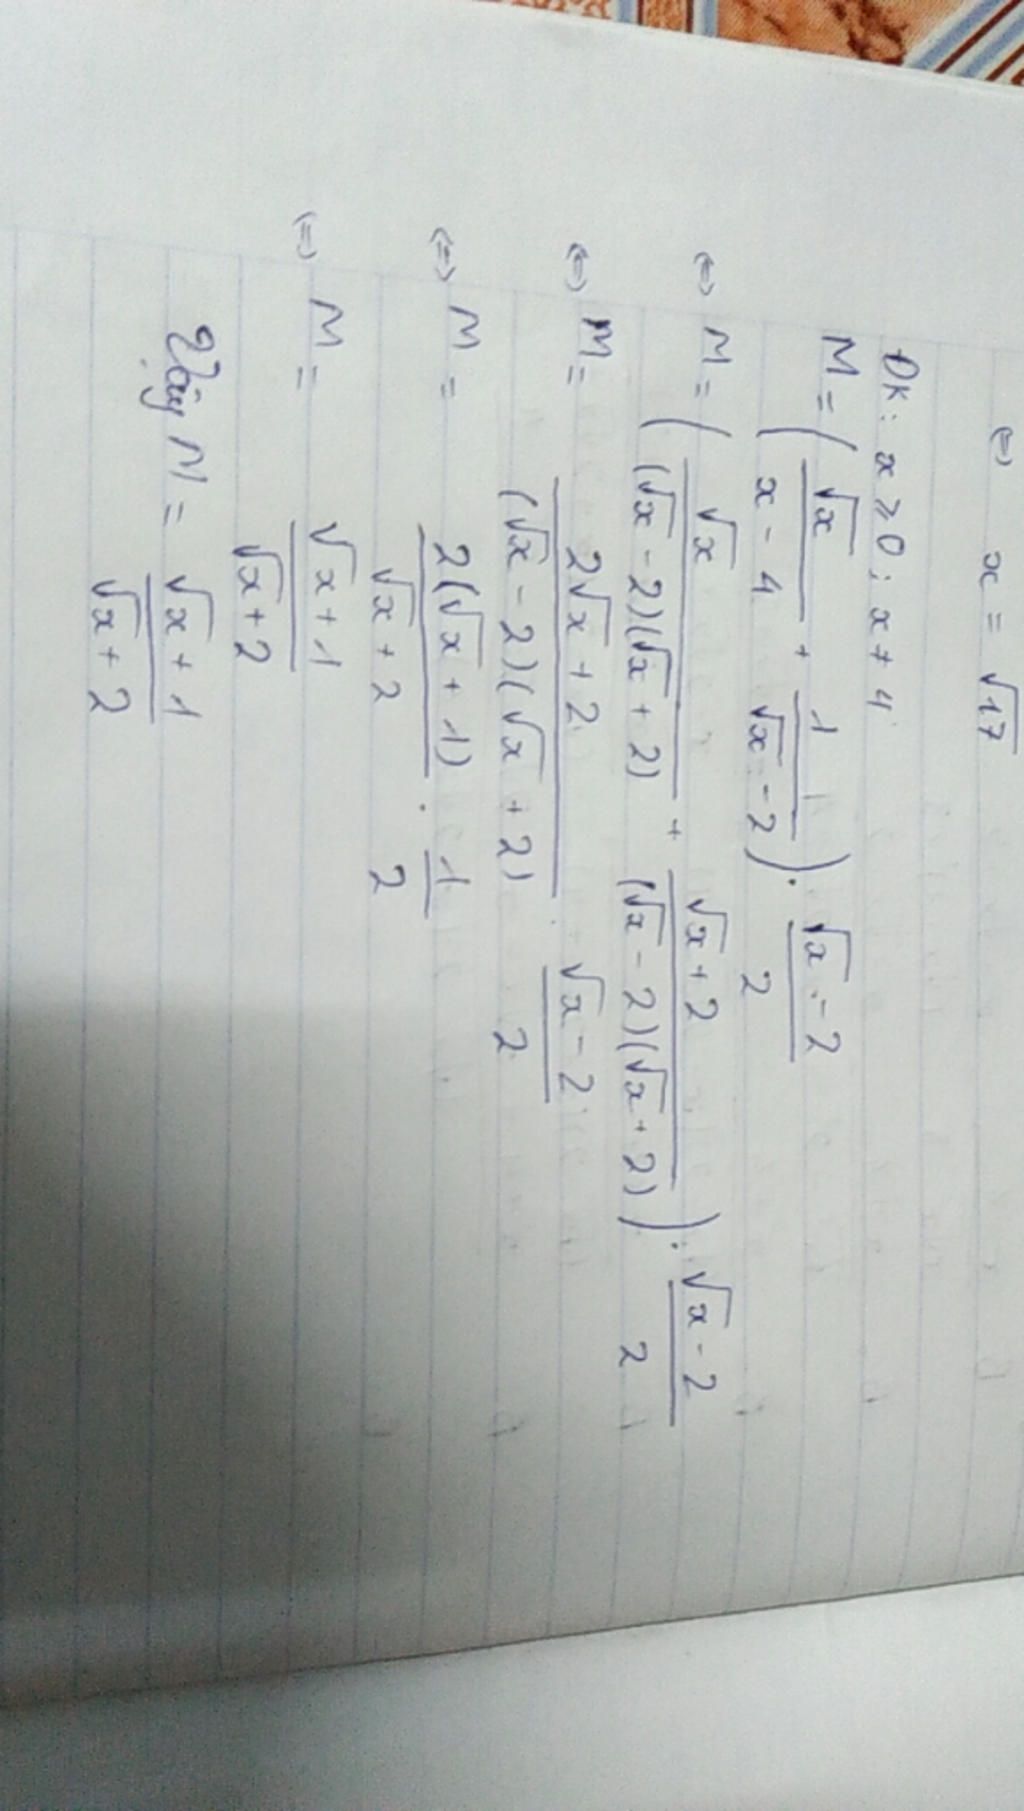 (=) x = √17
ĐK: x ≥ 0; x ≠ 4
M = ( √x / x - 4 + 1 / √x - 2 ) . √x - 2 / 2
(=) M = ( √x / (√x - 2)(√x + 2) + √x + 2 / (√x - 2)(√x + 2) ) . √x - 2 / 2
(=) M = 2√x + 2 / (√x - 2)(√x + 2) . √x - 2 / 2
(=) M = 2(√x + 1) / √x + 2 . 1 / 2
(=) M = √x + 1 / √x + 2
Vậy M = √x + 1 / √x + 2